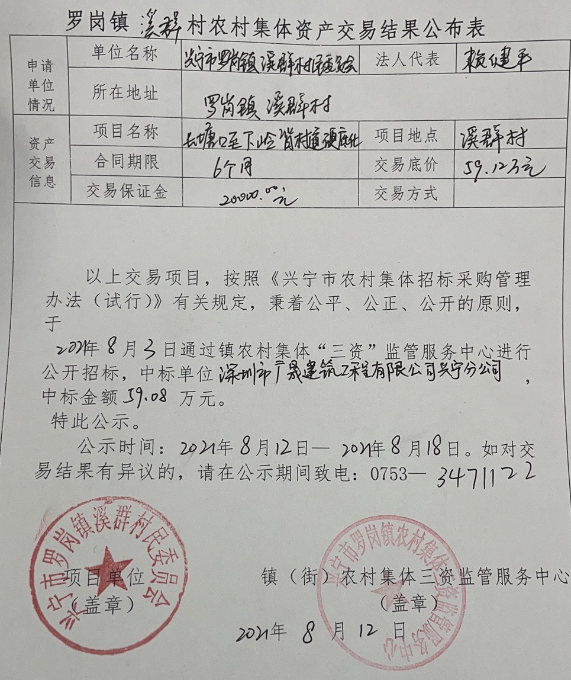 罗岗镇溪群村农村集体资产交易结果公布表
申请单位情况
单位名称 兴宁市罗岗镇溪群村民委员会 法人代表 赖建平
所在地址 罗岗镇溪群村
资产交易信息
项目名称 长塘口至下岭背村道硬底化 项目地点 溪群村
合同期限 6个月 交易底价 59.12万元
交易保证金 20000.00元 交易方式
以上交易项目，按照《兴宁市农村集体招标采购管理
办法（试行）》有关规定，秉着公平、公正、公开的原则，
于
2021年8月3日通过镇农村集体“三资”监管服务中心进行
公开招标，中标单位深圳市广晟建筑工程有限公司兴宁分公司，
中标金额59.08万元。
特此公示。
公示时间：2021年8月12日—2021年8月18日。如对交
易结果有异议的，请在公示期间致电：0753—3471122
项目单位 镇（街）农村集体三资监管服务中心
（盖章） （盖章）
2021年8月12日
兴宁市罗岗镇溪群村民委员会
兴宁市罗岗镇农村集体三资监管服务中心